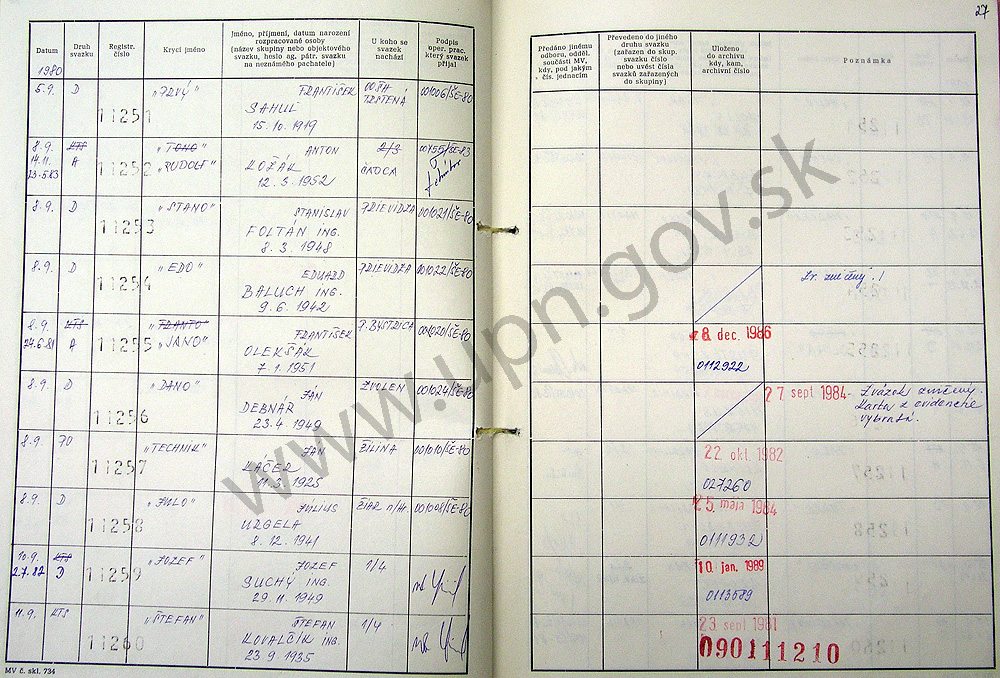 27
Datum
Druh svazku
Registr. číslo
Krycí jméno
Jméno, příjmení, datum narození
rozpracované osoby
(název skupiny nebo objektového
svazku, heslo ag. pátr. svazku
na neznámého pachatele)
U koho se
svazek
nachází
Podpis
oper. prac.
který svazek
přijal
Předáno jinému
odboru, odděl.
součásti MV,
kdy, pod jakým
čís. jednacím
Převedeno do jiného
druhu svazku
(zařazen do skup.
svazku číslo
nebo uvést čísla
svazků zařazených
do skupiny)
Uloženo
do archivu
kdy, kam,
archivní číslo
Poznámka
1980
5.9. D 11251 „PRVÝ" FRANTIŠEK OOŠH 001006/ŠE-80
SAHUL TRSTENÁ
15.10.1919
8.9. KTS 11252 „TONO" ANTON 2/3 00455/ŠE-83
14.11. A „RUDOLF" KOŽÁK ČADCA
23.5.83 12.3.1952
8.9. D 11253 „STANO" STANISLAV PRIEVIDZA 001021/ŠE-80
FOLTÁN ING.
8.3.1948
8.9. D 11254 „EDO" EDUARD PRIEVIDZA 001022/ŠE-80
BALUCH ING.
9.6.1942
8.9. KTS 11255 „FRANTO" FRANTIŠEK P. BYSTRICA 001020/ŠE-80
24.6.81 A „JANO" OLEKŠÁK
7.1.1951
8 dec. 1986
0112922
8.9. D 11256 „DANO" JÁN ZVOLEN 001024/ŠE-80
DEBNÁR
23.4.1949
27 sept 1984 Zväzok zničený.
Karta z evidencie
vybratá.
8.9. 70 11257 „TECHNIK" JÁN ŽILINA 001010/ŠE-80
KÁČER
11.3.1925
22 okt. 1982
027260
8.9. D 11258 „JULO" JÚLIUS ŽIAR n/Hr. 001008/ŠE-80
URGELA
8.12.1941
25 mája 1984
0111932
10.9. KTS 11259 „JOZEF" JOZEF 1/4
2.7.82 D SUCHÝ ING.
29.11.1949
10 jan. 1989
0113589
11.9. KTS 11260 „ŠTEFAN" ŠTEFAN 1/4
KOVALČÍK ING.
23 9 1935
23 sept 1981
090111210
MV č. skl. 734
www.upn.gov.sk